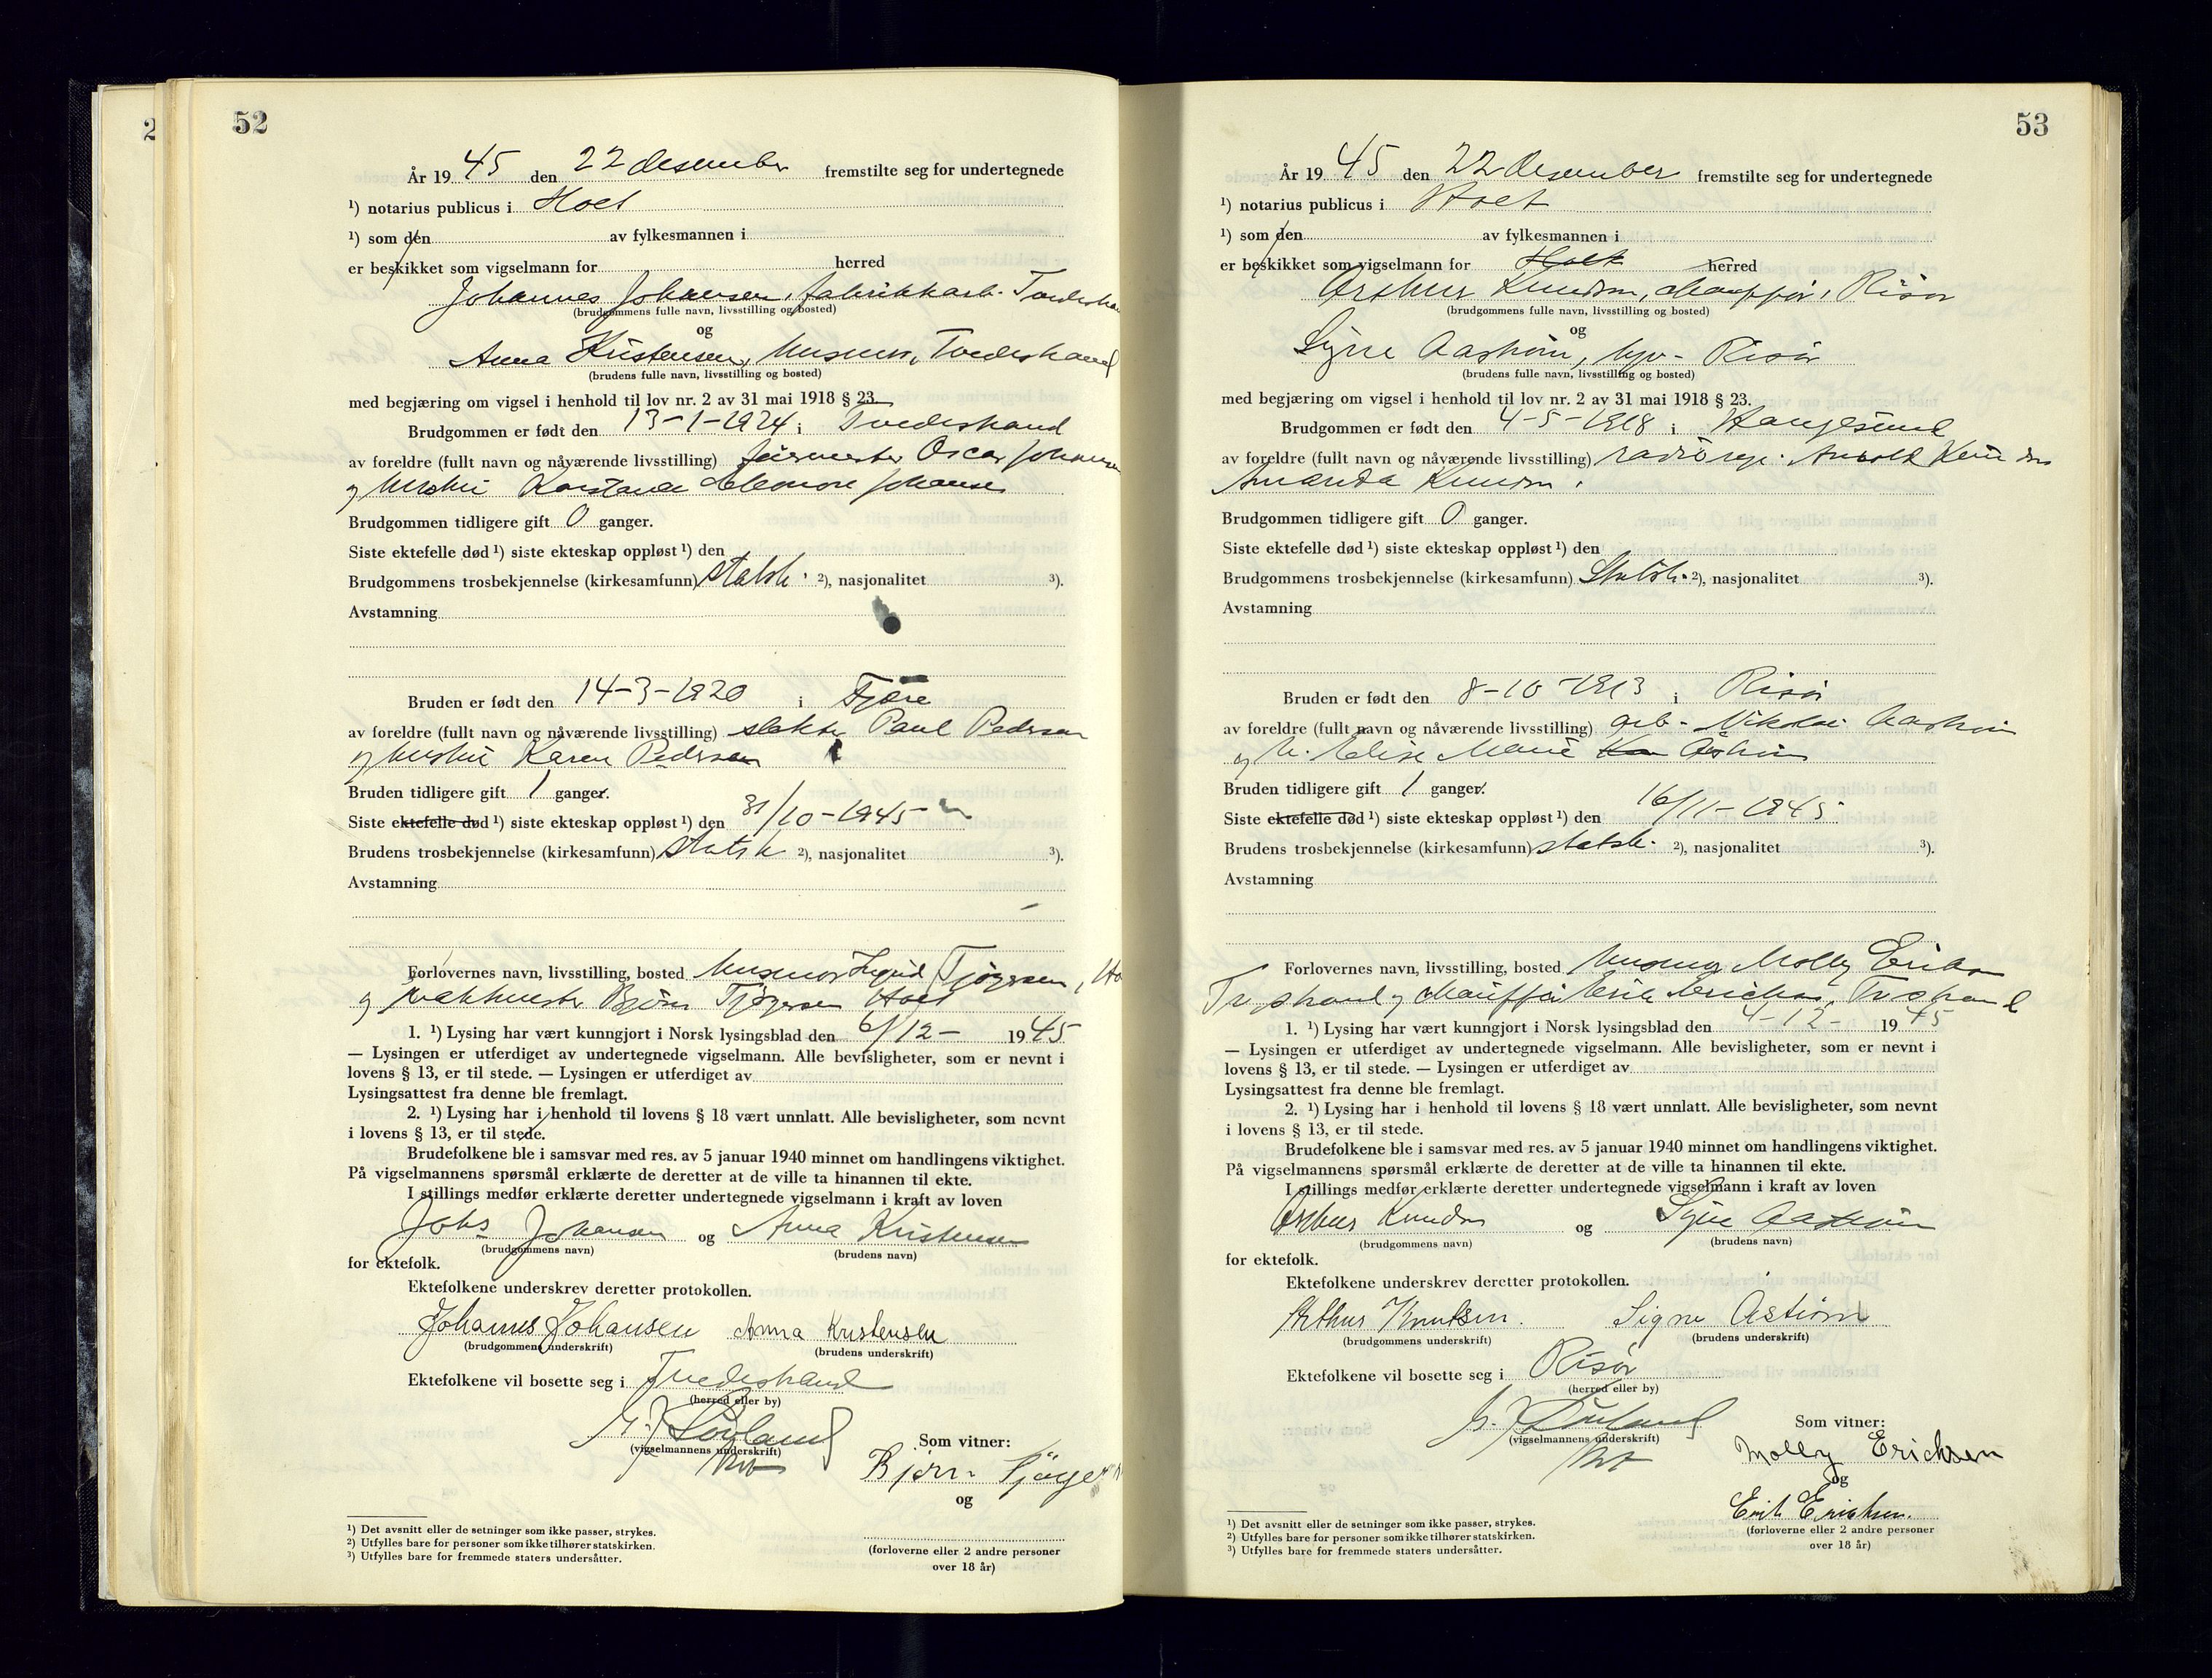 52
År 19 45 den 22 desember fremstilte seg for undertegnede
¹) notarius publicus i Holt
¹) som den av fylkesmannen i
er beskikket som vigselmann for herred
Johannes Johansen, fabrikkarb. Tvedestra
(brudgommens fulle navn, livsstilling og bosted)
og
Anna Kristensen, husmor, Tvedestrand
(brudens fulle navn, livsstilling og bosted)
med begjæring om vigsel i henhold til lov nr. 2 av 31 mai 1918 § 23.
Brudgommen er født den 13-1-1924 i Tvedestrand
av foreldre (fullt navn og nåværende livsstilling) feiermester Oscar Johansen
og hustru Konstanse Eleonore Johansen
Brudgommen tidligere gift 0 ganger.
Siste ektefelle død ¹) siste ekteskap oppløst ¹) den
Brudgommens trosbekjennelse (kirkesamfunn) statsk. ²), nasjonalitet ³).
Avstamning
Bruden er født den 14-3-1920 i Fjære
av foreldre (fullt navn og nåværende livsstilling) slakter Paul Pedersen
og hustru Karen Pedersen
Bruden tidligere gift 1 ganger.
Siste ektefelle død ¹) siste ekteskap oppløst ¹) den 31/10-1945
Brudens trosbekjennelse (kirkesamfunn) statsk ²), nasjonalitet ³).
Avstamning
Forlovernes navn, livsstilling, bosted husmor Ingrid Tjøgersen, Ho
og Bjørn Tjøgersen Holt
1. ¹) Lysing har vært kunngjort i Norsk lysingsblad den 6/12- 1945
— Lysingen er utferdiget av undertegnede vigselmann. Alle bevisligheter, som er nevnt i
lovens § 13, er til stede. — Lysingen er utferdiget av
Lysingsattest fra denne ble fremlagt.
2. ¹) Lysing har i henhold til lovens § 18 vært unnlatt. Alle bevisligheter, som nevnt
i lovens § 13, er til stede.
Brudefolkene ble i samsvar med res. av 5 januar 1940 minnet om handlingens viktighet.
På vigselmannens spørsmål erklærte de deretter at de ville ta hinannen til ekte.
I stillings medfør erklærte deretter undertegnede vigselmann i kraft av loven
Johs Johansen og Anna Kristensen
(brudgommens navn) (brudens navn)
for ektefolk.
Ektefolkene underskrev deretter protokollen.
Johannes Johansen Anna Kristensen
(brudgommens underskrift) (brudens underskrift)
Ektefolkene vil bosette seg i Tvedestrand
(herred eller by)
(vigselmannens underskrift)
Som vitner:
Bjørn Tjøge
og
(forloverne eller 2 andre personer
over 18 år)
¹) Det avsnitt eller de setninger som ikke passer, strykes.
²) Utfylles bare for personer som ikke tilhører statskirken.
³) Utfylles bare for fremmede staters undersåtter.
53
År 19 45 den 22 desember fremstilte seg for undertegnede
¹) notarius publicus i Holt
¹) som den av fylkesmannen i
er beskikket som vigselmann for Holt herred
Arthur Knudsen, chauffør, Risør
(brudgommens fulle navn, livsstilling og bosted)
og
Signe Aastrøm, Risør
(brudens fulle navn, livsstilling og bosted)
med begjæring om vigsel i henhold til lov nr. 2 av 31 mai 1918 § 23.
Brudgommen er født den 4-5-1918 i Haugesund
av foreldre (fullt navn og nåværende livsstilling) radiorep. Knudsen
Amanda Knudsen.
Brudgommen tidligere gift 0 ganger.
Siste ektefelle død ¹) siste ekteskap oppløst ¹) den
Brudgommens trosbekjennelse (kirkesamfunn) Statsk. ²), nasjonalitet ³).
Avstamning
Bruden er født den 8-10-1913 i Risør
av foreldre (fullt navn og nåværende livsstilling) arb. Nikolai Aastrøm
og h. Elise Marie Aastrøm
Bruden tidligere gift 1 ganger.
Siste ektefelle død ¹) siste ekteskap oppløst ¹) den 16/11-1945
Brudens trosbekjennelse (kirkesamfunn) statsk. ²), nasjonalitet ³).
Avstamning
Forlovernes navn, livsstilling, bosted husmor Molly Eriksen
Tvedestrand og chauffør Erik Erichsen, Tvedestrand
1. ¹) Lysing har vært kunngjort i Norsk lysingsblad den 4-12- 1945
— Lysingen er utferdiget av undertegnede vigselmann. Alle bevisligheter, som er nevnt i
lovens § 13, er til stede. — Lysingen er utferdiget av
Lysingsattest fra denne ble fremlagt.
2. ¹) Lysing har i henhold til lovens § 18 vært unnlatt. Alle bevisligheter, som nevnt
i lovens § 13, er til stede.
Brudefolkene ble i samsvar med res. av 5 januar 1940 minnet om handlingens viktighet.
På vigselmannens spørsmål erklærte de deretter at de ville ta hinannen til ekte.
I stillings medfør erklærte deretter undertegnede vigselmann i kraft av loven
Arthur Knudsen og Signe Aastrøm
(brudgommens navn) (brudens navn)
for ektefolk.
Ektefolkene underskrev deretter protokollen.
Arthur Knutsen. Signe Astrøm
(brudgommens underskrift) (brudens underskrift)
Ektefolkene vil bosette seg i Risør
(herred eller by)
(vigselmannens underskrift)
Som vitner:
Molly Erichsen
og
Erik Erichsen.
(forloverne eller 2 andre personer
over 18 år)
¹) Det avsnitt eller de setninger som ikke passer, strykes.
²) Utfylles bare for personer som ikke tilhører statskirken.
³) Utfylles bare for fremmede staters undersåtter.